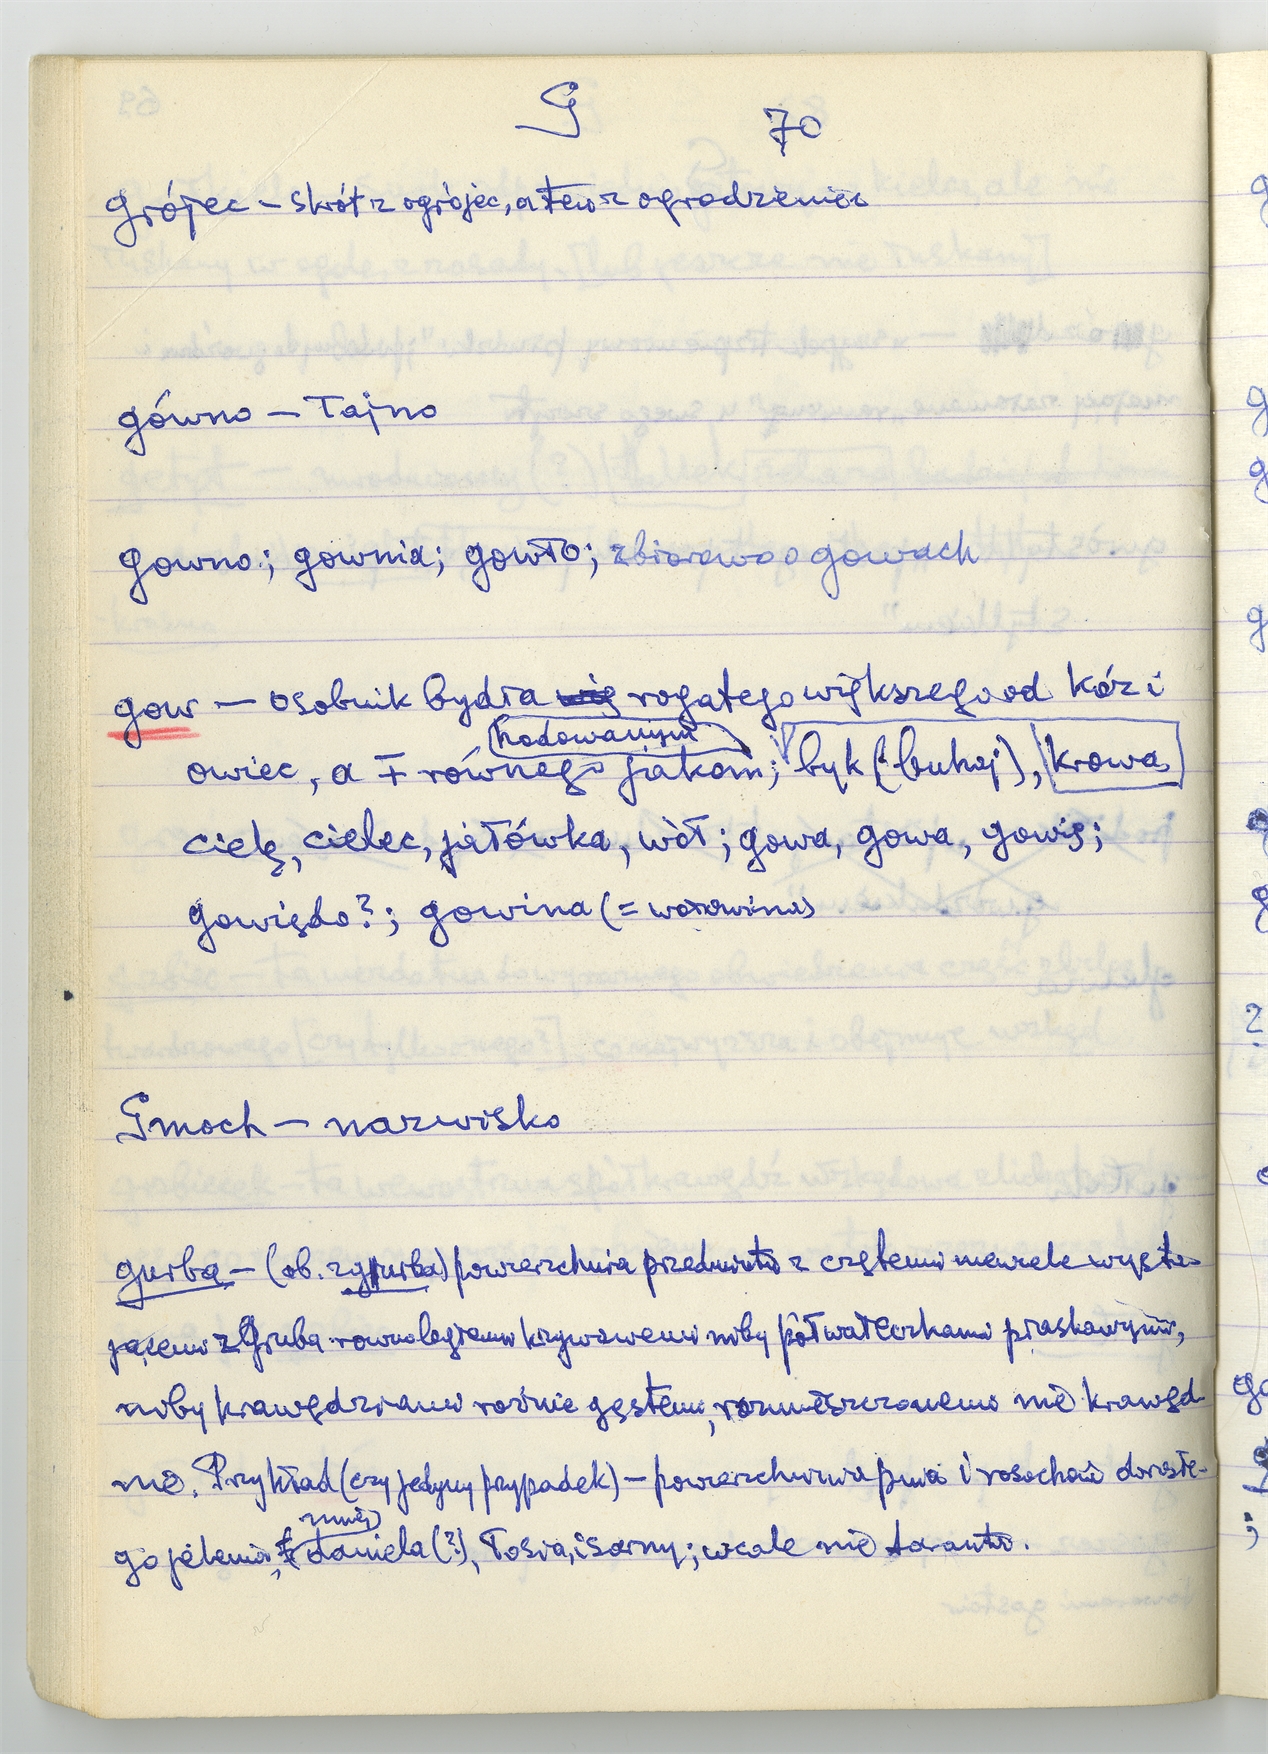 G 70
grójec – skrót z ogrójec, a ten z ogrodzeniec
gówno – łajno
gowno; gownia; gowło; zbiorowo o gowach
gow – osobnik bydła rogatego większego od kóz i
hodowanym
owiec, a ∓ równego jakom; byk (buhaj), krowa,
cielę, cielec, jałówka, wół; gowa, gowa, gowię;
gowiędo?; gowina (= wołowina)
Gmoch – nazwisko
gurba – (ob. zgurba) powierzchnia przedmiotu z częstemi niewiele wysta-
jącemi z Gruba równoległemi krzywowemi niby półwałeczkami piaskowymi,
niby krawędziami rożnie gęstemi, rozmieszczonemi nie krawęd-
nie. Przykład (czy jedyny przypadek) – powierzchnia pnia i rosochań dorosłe-
mniej
go jelenia, daniela (?), łosia, i sarny; wcale nie